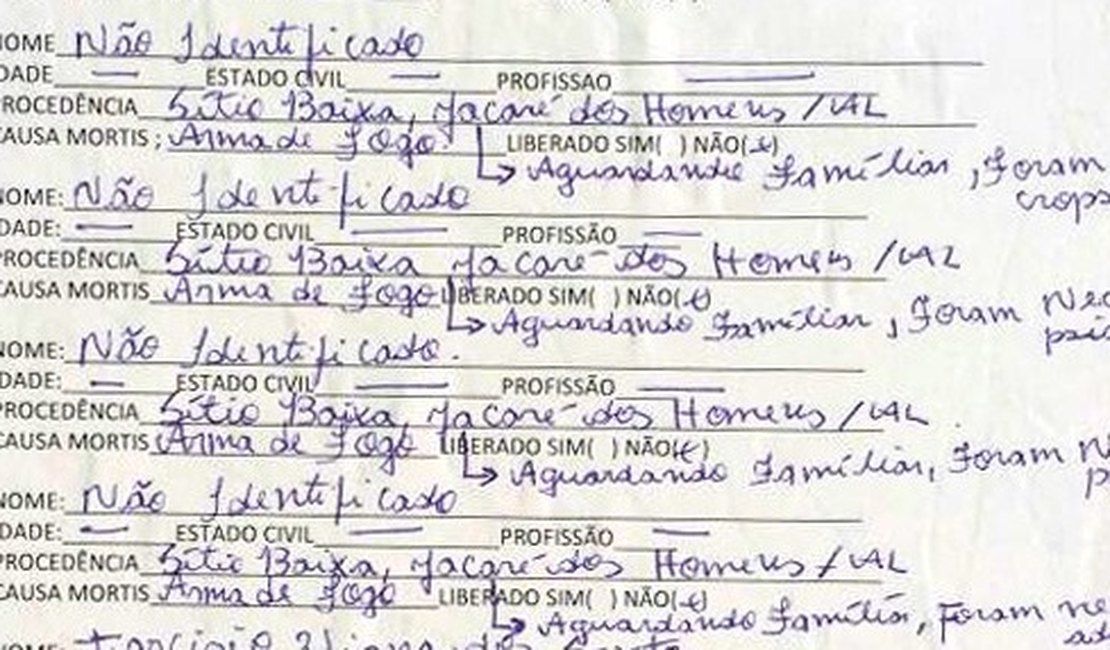 NOME Não Identificado
DADE — ESTADO CIVIL — PROFISSAO —
ROCEDÊNCIA Sítio Baixa, Jacaré dos Homens /AL
CAUSA MORTIS ; Arma de Fogo LIBERADO SIM( ) NÃO(x)
Aguardando Famíliar, Foram
NOME: Não Identificado
DADE: — ESTADO CIVIL — PROFISSÃO —
PROCEDÊNCIA Sítio Baixa Jacaré dos Homens /AL
CAUSA MORTIS Arma de Fogo LIBERADO SIM( ) NÃO(x)
Aguardando Famíliar, Foram Nec
NOME: Não Identificado.
DADE: — ESTADO CIVIL — PROFISSÃO —
PROCEDÊNCIA Sítio Baixa, Jacaré dos Homens /AL
CAUSA MORTIS Arma de Fogo LIBERADO SIM( ) NÃO(x)
Aguardando Famíliar, Foram N
NOME: Não Identificado
DADE: — ESTADO CIVIL — PROFISSÃO —
PROCEDÊNCIA Sítio Baixa, Jacaré dos Homens /AL
CAUSA MORTIS Arma de Fogo LIBERADO SIM( ) NÃO(x)
Aguardando Família, Foram ne